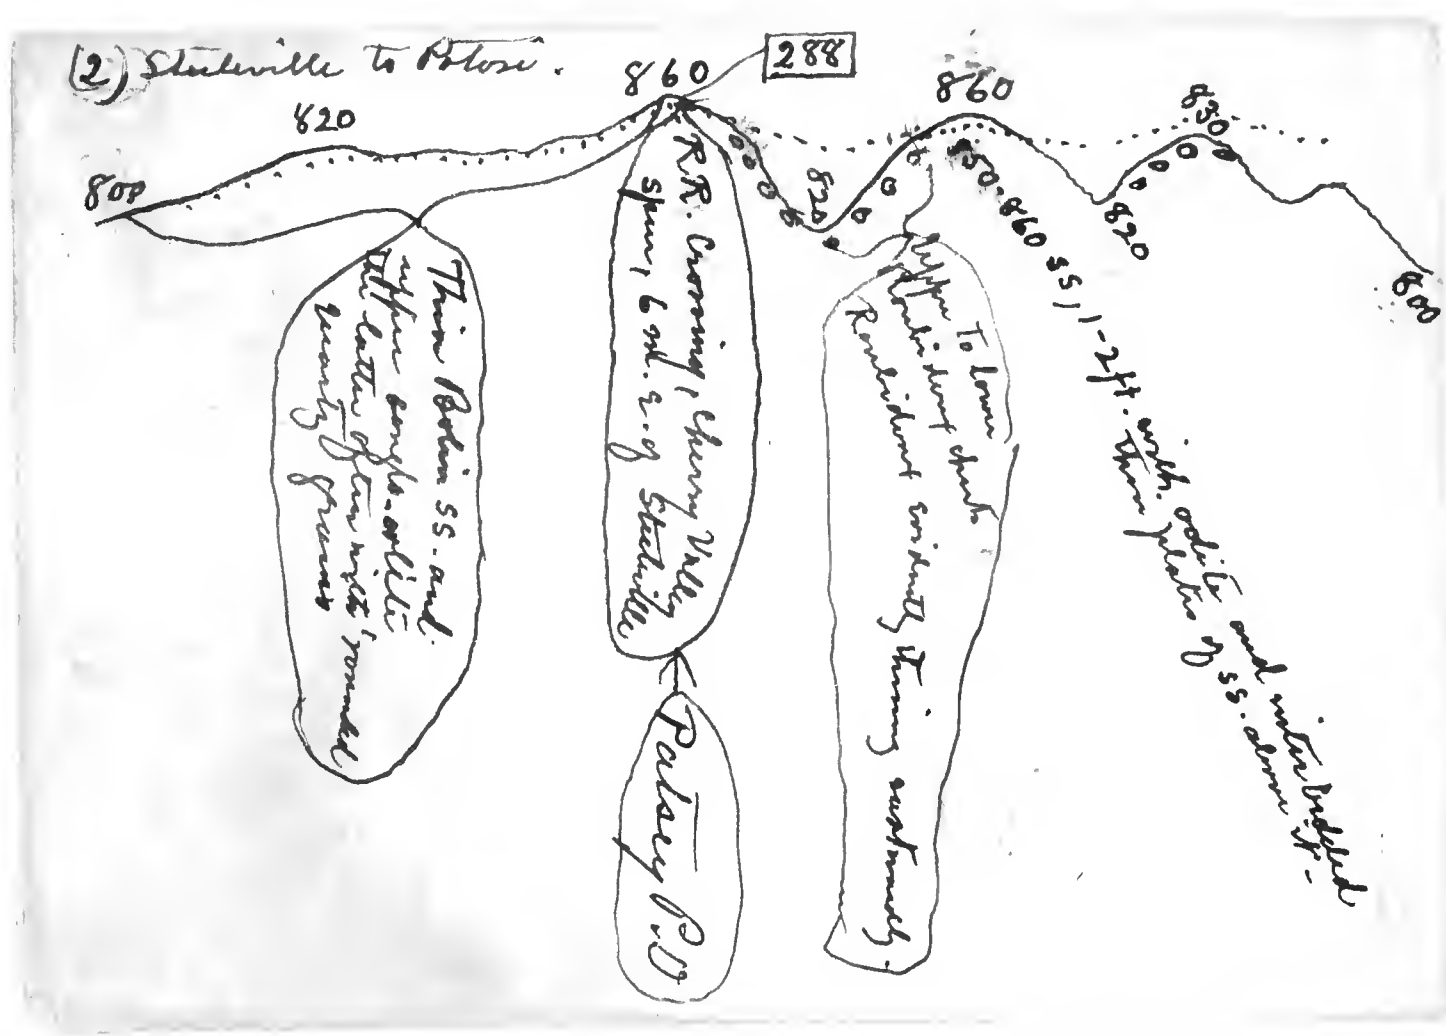 (2) Steeleville to Potosi.
288
860
860
830
820
800
820
820
800
Thin Bolin ss. and
upper conglo-oolite
the latter often with rounded
quartz grains
RR. Crossing, Cherry Valley
spur, 6 mi. E. of Steeleville
Patsey P.O
Upper to lower
Roubidoux chert
Roubidoux evidently thinning eastwardly
850-860 ss, 1-2 ft. with oolite and interbedded
thin plates of ss. above it.